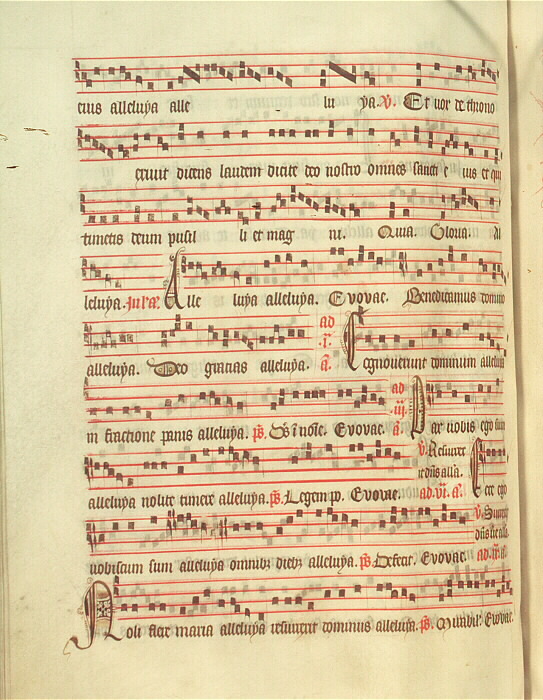 eius alleluya alle lu ya. V. Et vox de throno
exivit dicens laudem dicite deo nostro omnes sancti e ius et qui
timetis deum pusil li et mag ni. Quia. Gloria. al
leluya. Alle luya alleluya. Evovae. Benedicamus domino
alleluya. Deo gratias alleluya. ad .i. a. Cognoverunt dominum alleluia
in fractione panis alleluya. ps. Evovae. ad .iii. a. Pax vobis ego sum
V. Resurrex
it dns alla.
alleluya nolite timere alleluya. ps. Legem p. Evovae. ad .vi. a. Ecce ego
V. Surrexit
dns
vobiscum sum alleluya omnibz diebz alleluya. ps. Defecit. Evovae. ad
Noli flere maria alleluya resurrexit dominus alleluya. ps. Mirabil. Evovae.